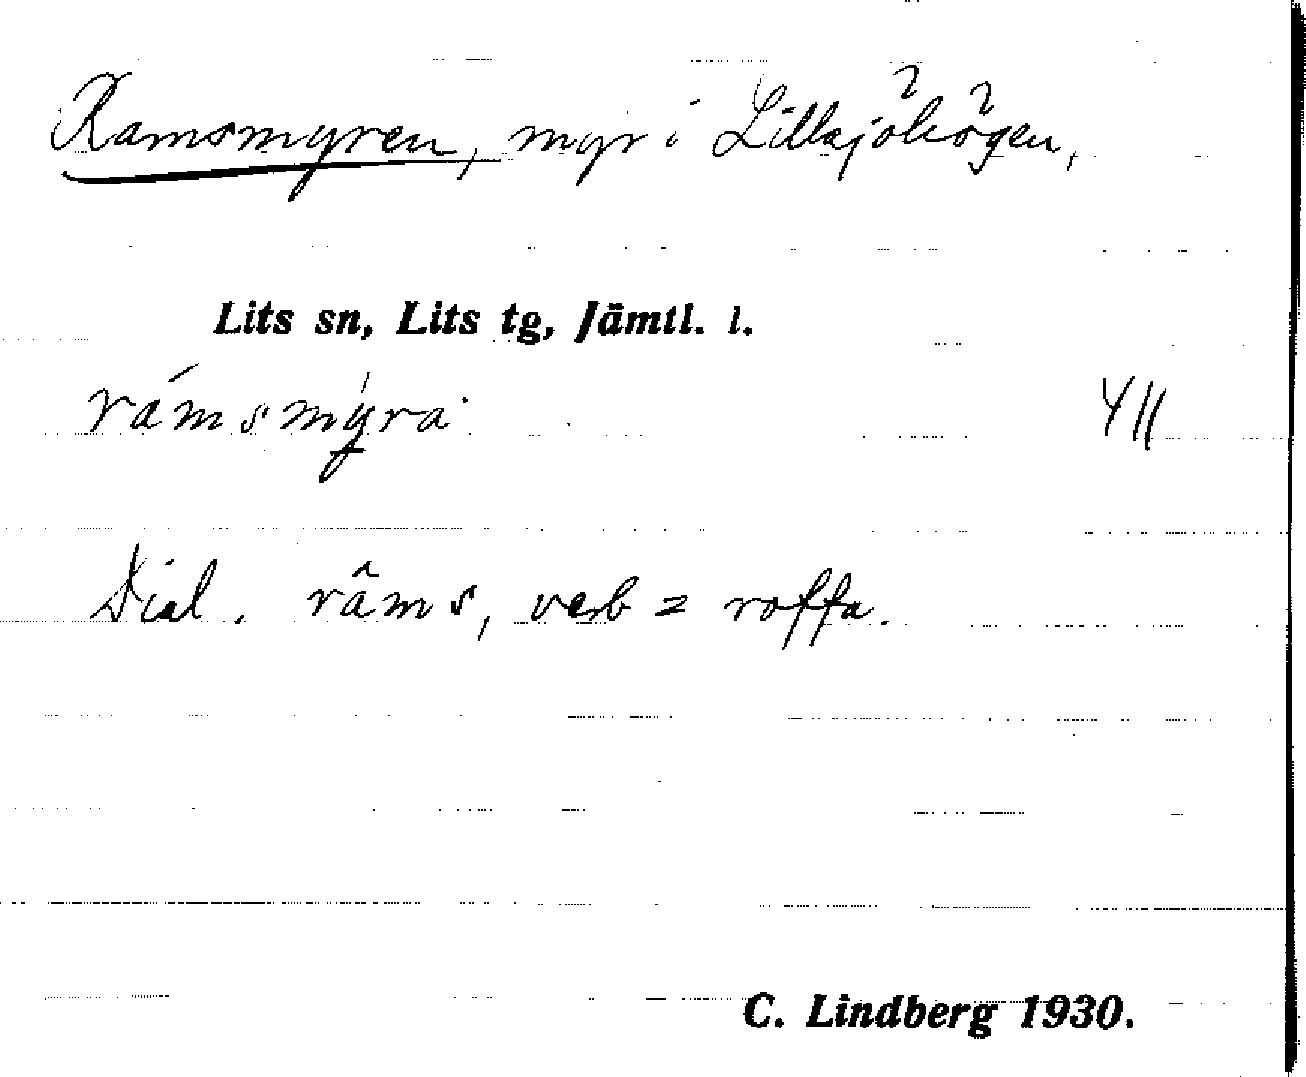 Ramsmyren, myr i Lillsjöhögen,
Lits sn, Lits tg, Jämtl. l.
rámsmýra
Dial. râms, verb = roffa.
C. Lindberg 1930.